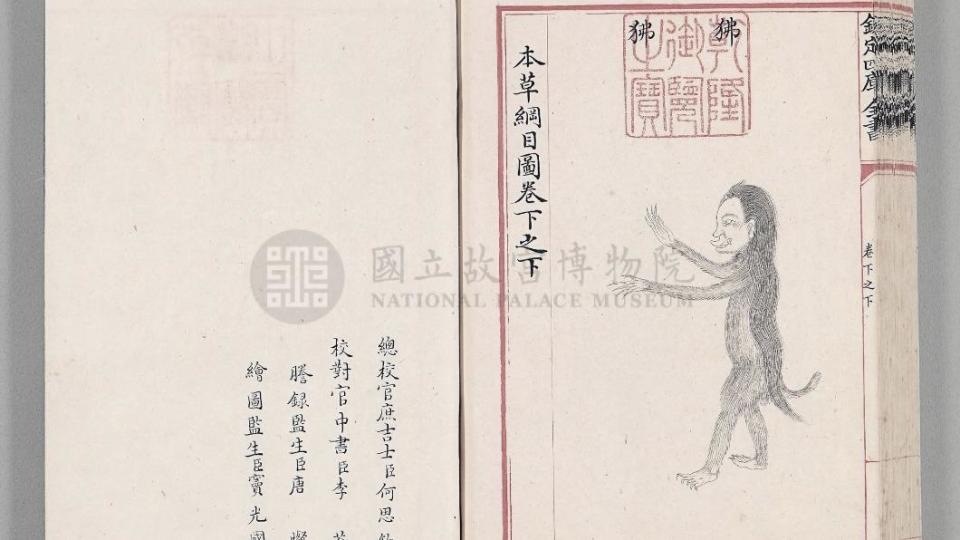 欽定四庫全書
卷下之下
狒狒
乾隆御覽之寶
本草綱目圖卷下之下
國立故宮博物院
NATIONAL PALACE MUSEUM
總校官庶吉士臣何思
校對官中書臣李
謄録監生臣唐
繪圖監生臣竇光國